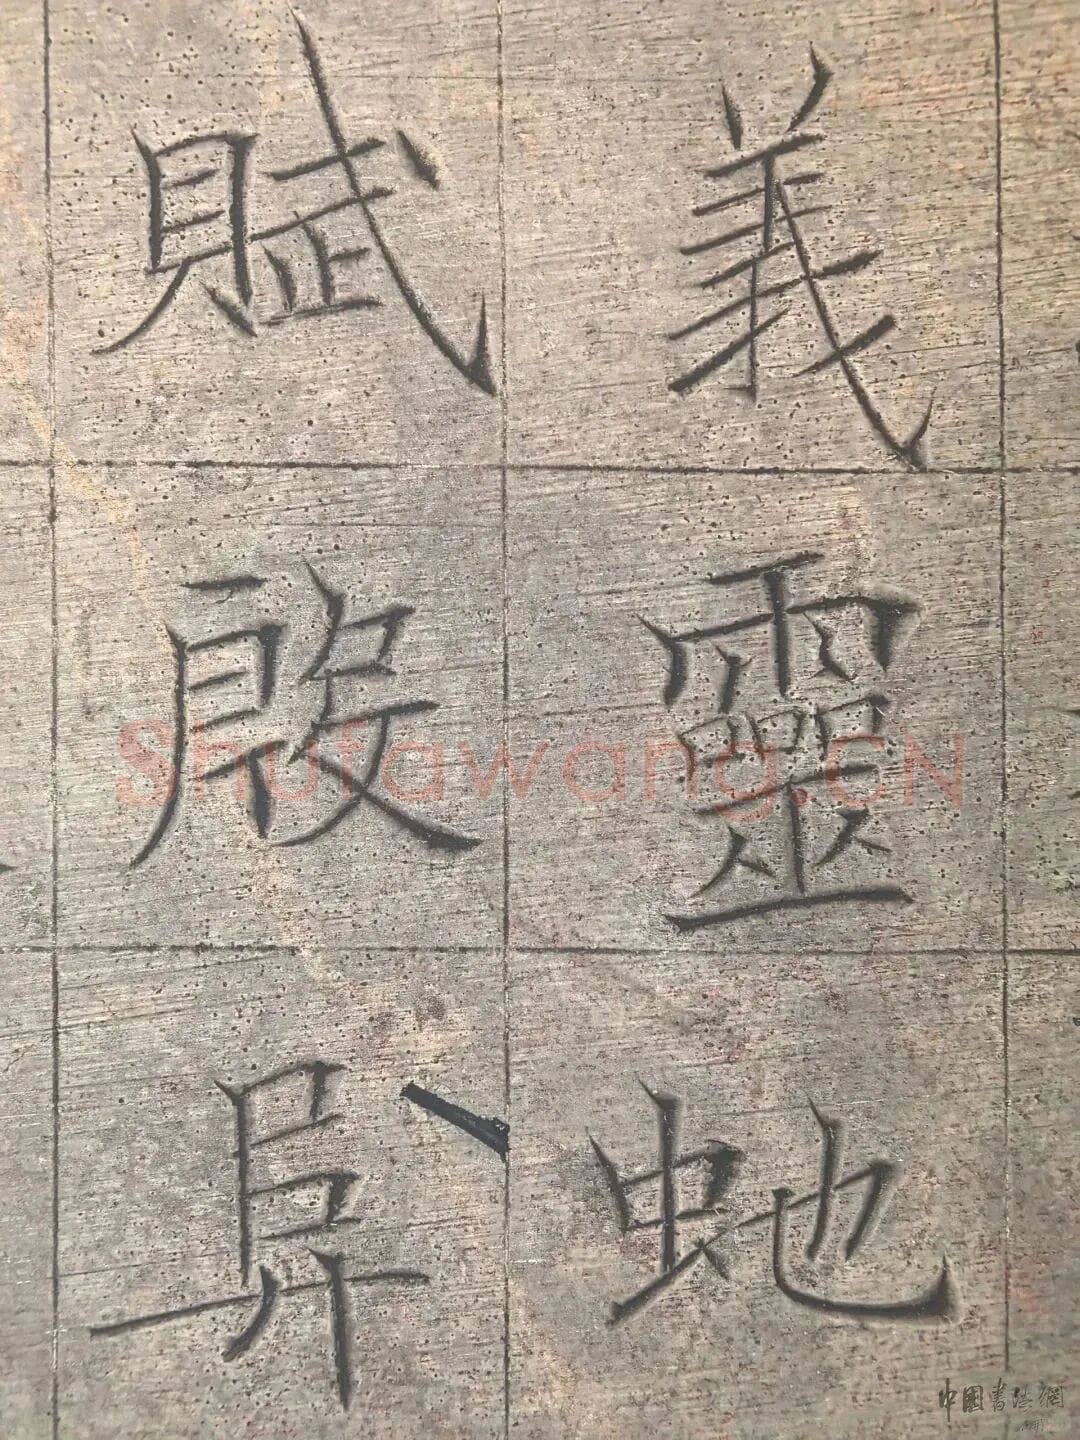 義靈虵
賦殷阜
Shufawang.CN
中國書法網